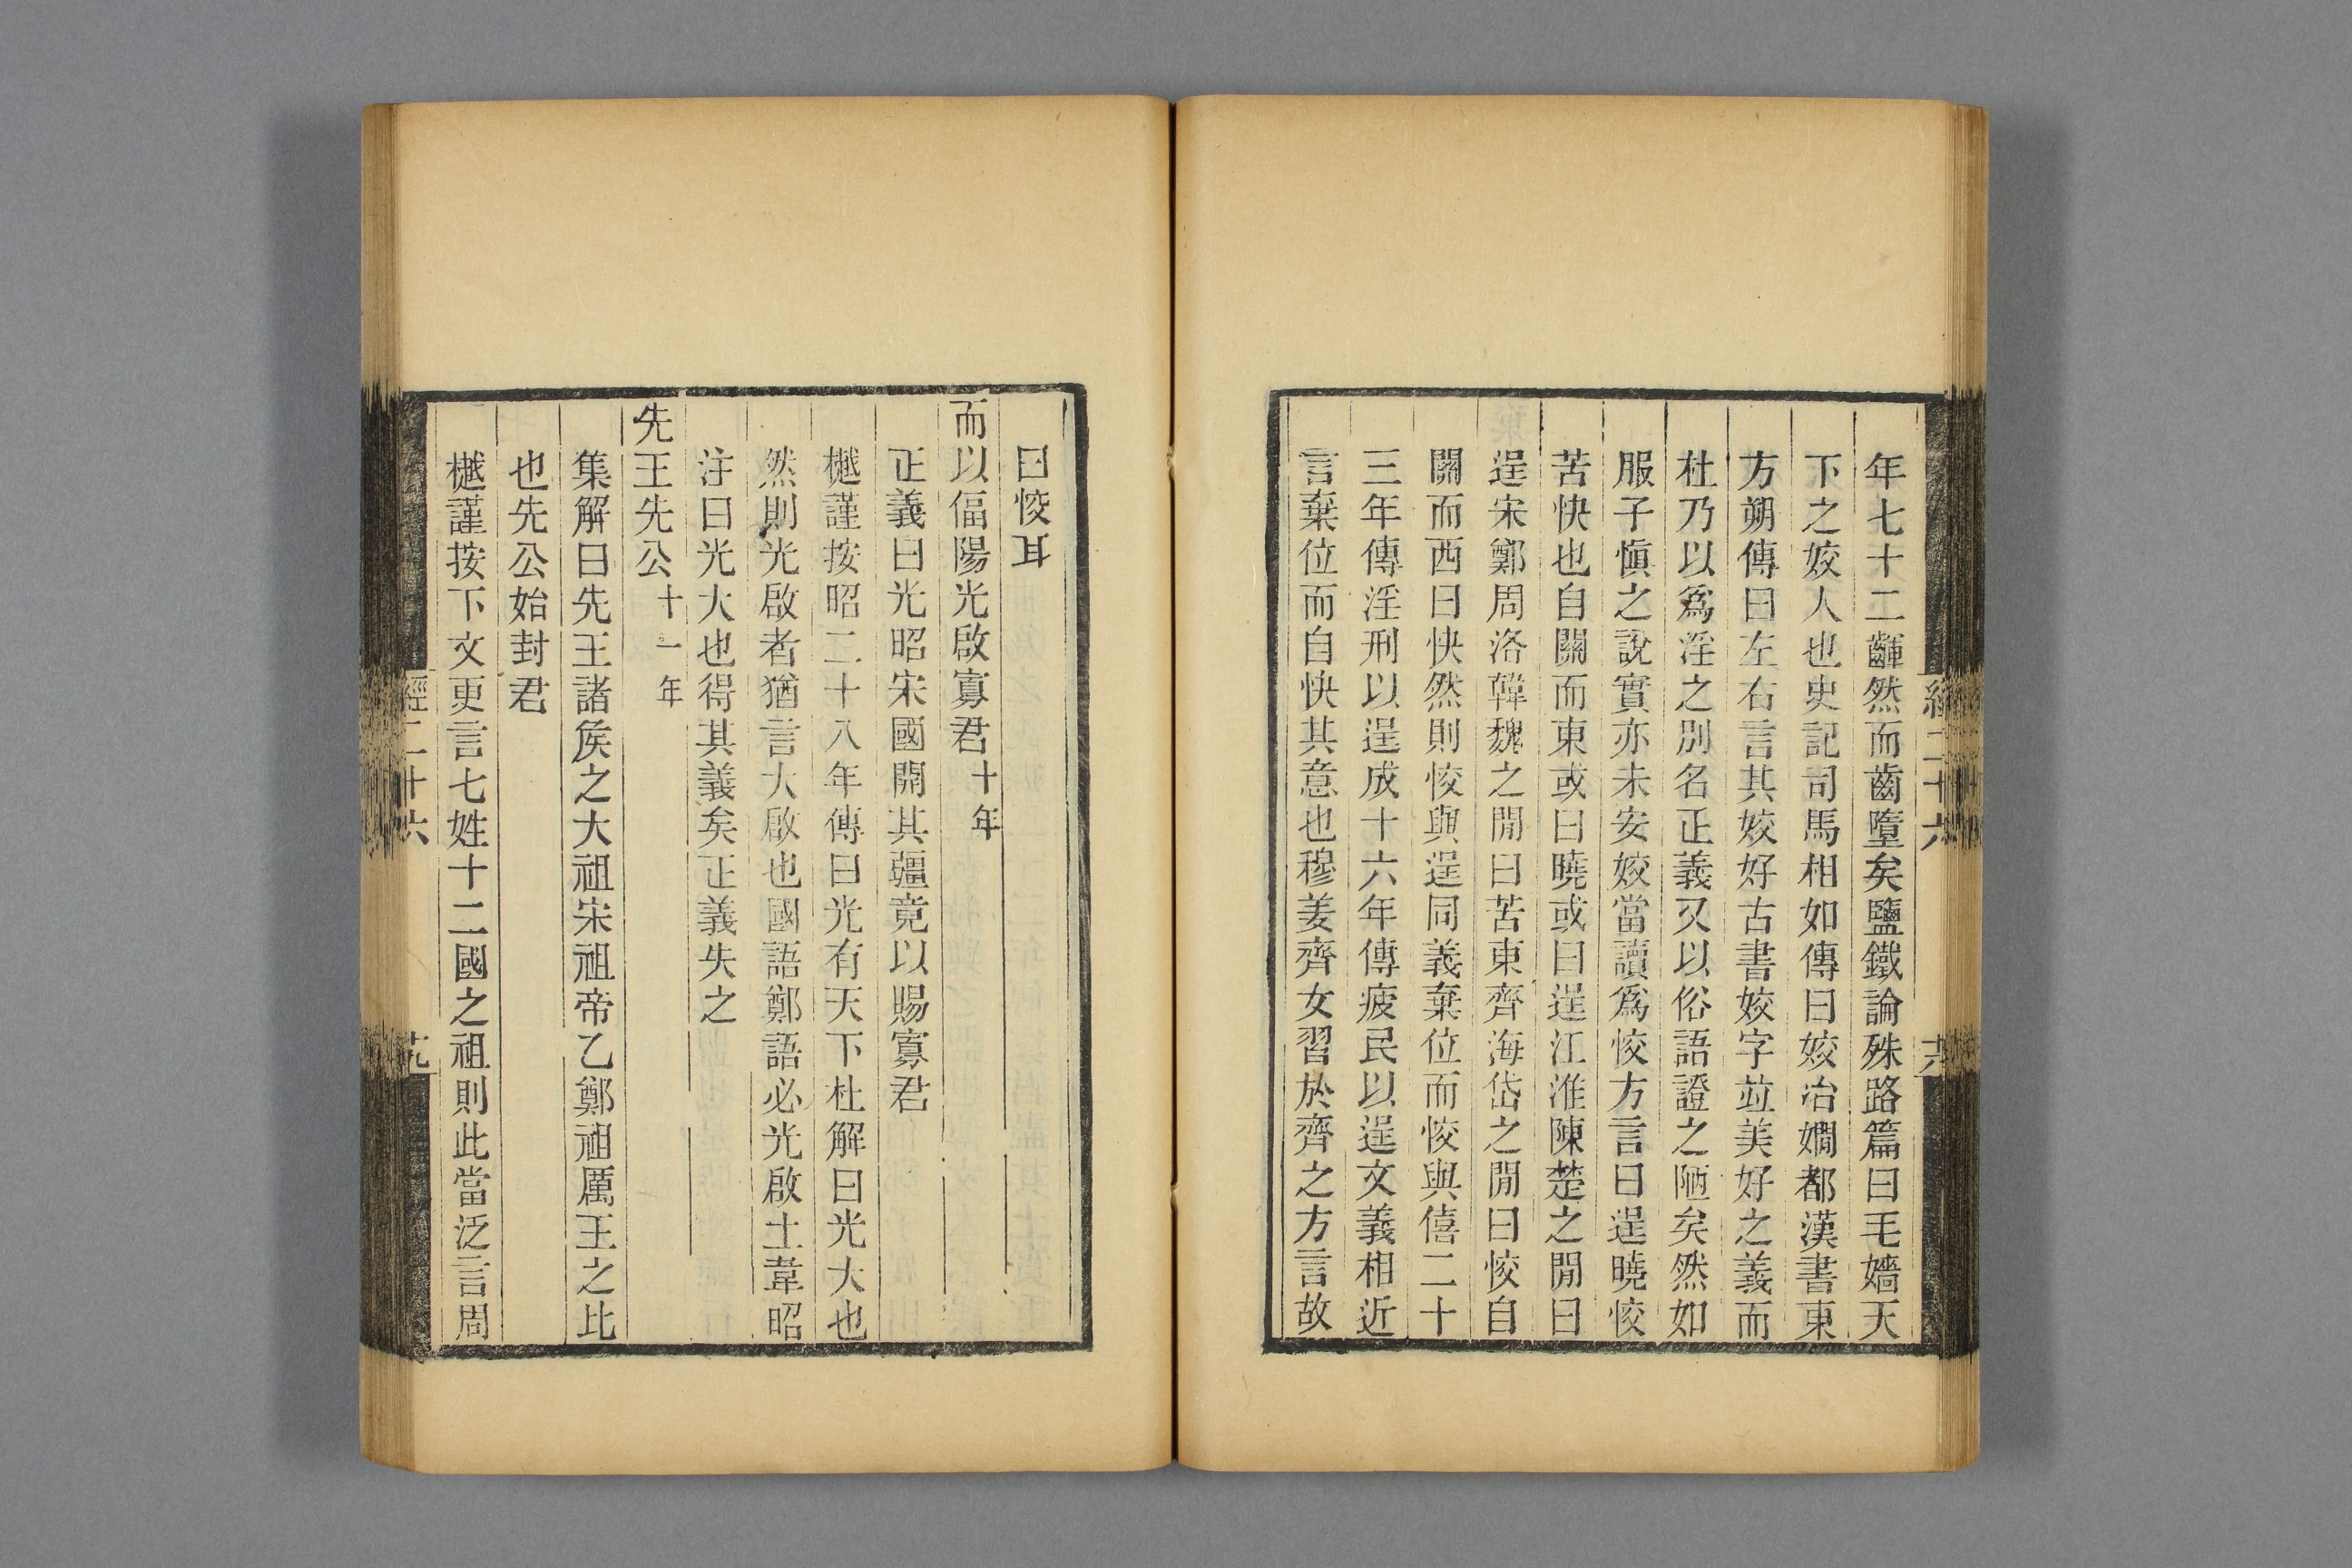 年七十二齳然而齒墮矣鹽鐵論殊路篇曰毛嬙天
下之姣人也史記司馬相如傳曰姣冶嫺都漢書東
方朔傳曰左右言其姣好古書姣字竝美好之義而
杜乃以爲淫之別名正義又以俗語證之陋矣然如
服子愼之說實亦未安姣當讀爲恔方言曰逞曉恔
苦快也自關而東或曰曉或曰逞江淮陳楚之閒曰
逞宋鄭周洛韓魏之閒曰苦東齊海岱之閒曰恔自
關而西曰快然則恔與逞同義棄位而恔與僖二十
三年傳淫刑以逞成十六年傳疲民以逞文義相近
言棄位而自快其意也穆姜齊女習於齊之方言故
經二十六
曰恔耳
而以偪陽光啟寡君十年
正義曰光昭宋國開其疆竟以賜寡君
樾謹按昭二十八年傳曰光有天下杜解曰光大也
然則光啟者猶言大啟也國語鄭語必光啟土韋昭
注曰光大也得其義矣正義失之
先王先公十一年
集解曰先王諸矦之大祖宋祖帝乙鄭祖厲王之比
也先公始封君
樾謹按下文更言七姓十二國之祖則此當泛言周
經二十六